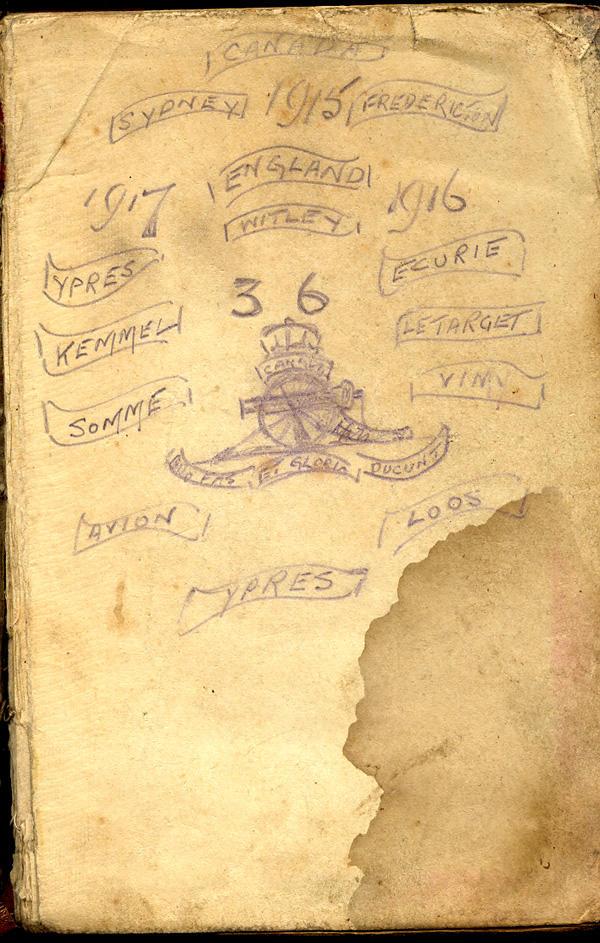 CANADA
SYDNEY 1915 FREDERICTON
ENGLAND
1917 WITLEY 1916
YPRES ECURIE
3 6
KEMMEL LE TARGET
CANADA
SOMME VIMY
QUO FAS ET GLORIA DUCUNT
AVION LOOS
YPRES